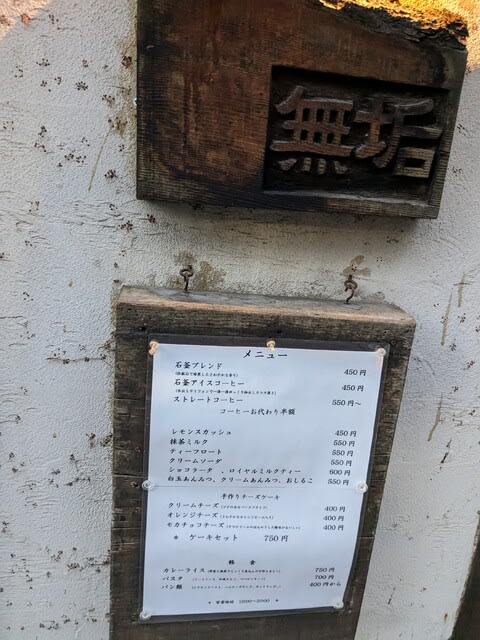 無垢
メニュー
石釜ブレンド 450円
石釜アイスコーヒー 450円
ストレートコーヒー 550円～
コーヒーお代わり半額
レモンスカッシュ 450円
抹茶ミルク 550円
ティーフロート 550円
クリームソーダ 550円
ショコラータ 、ロイヤルミルクティー 600円
白玉あんみつ、クリームあんみつ、おしるこ 550円
手作りチーズケーキ
クリームチーズ 400円
オレンジチーズ 400円
モカチョコチーズ 400円
＊ ケーキセット 750円
軽 食
カレーライス 750円
パスタ 700円
パン類 400円から